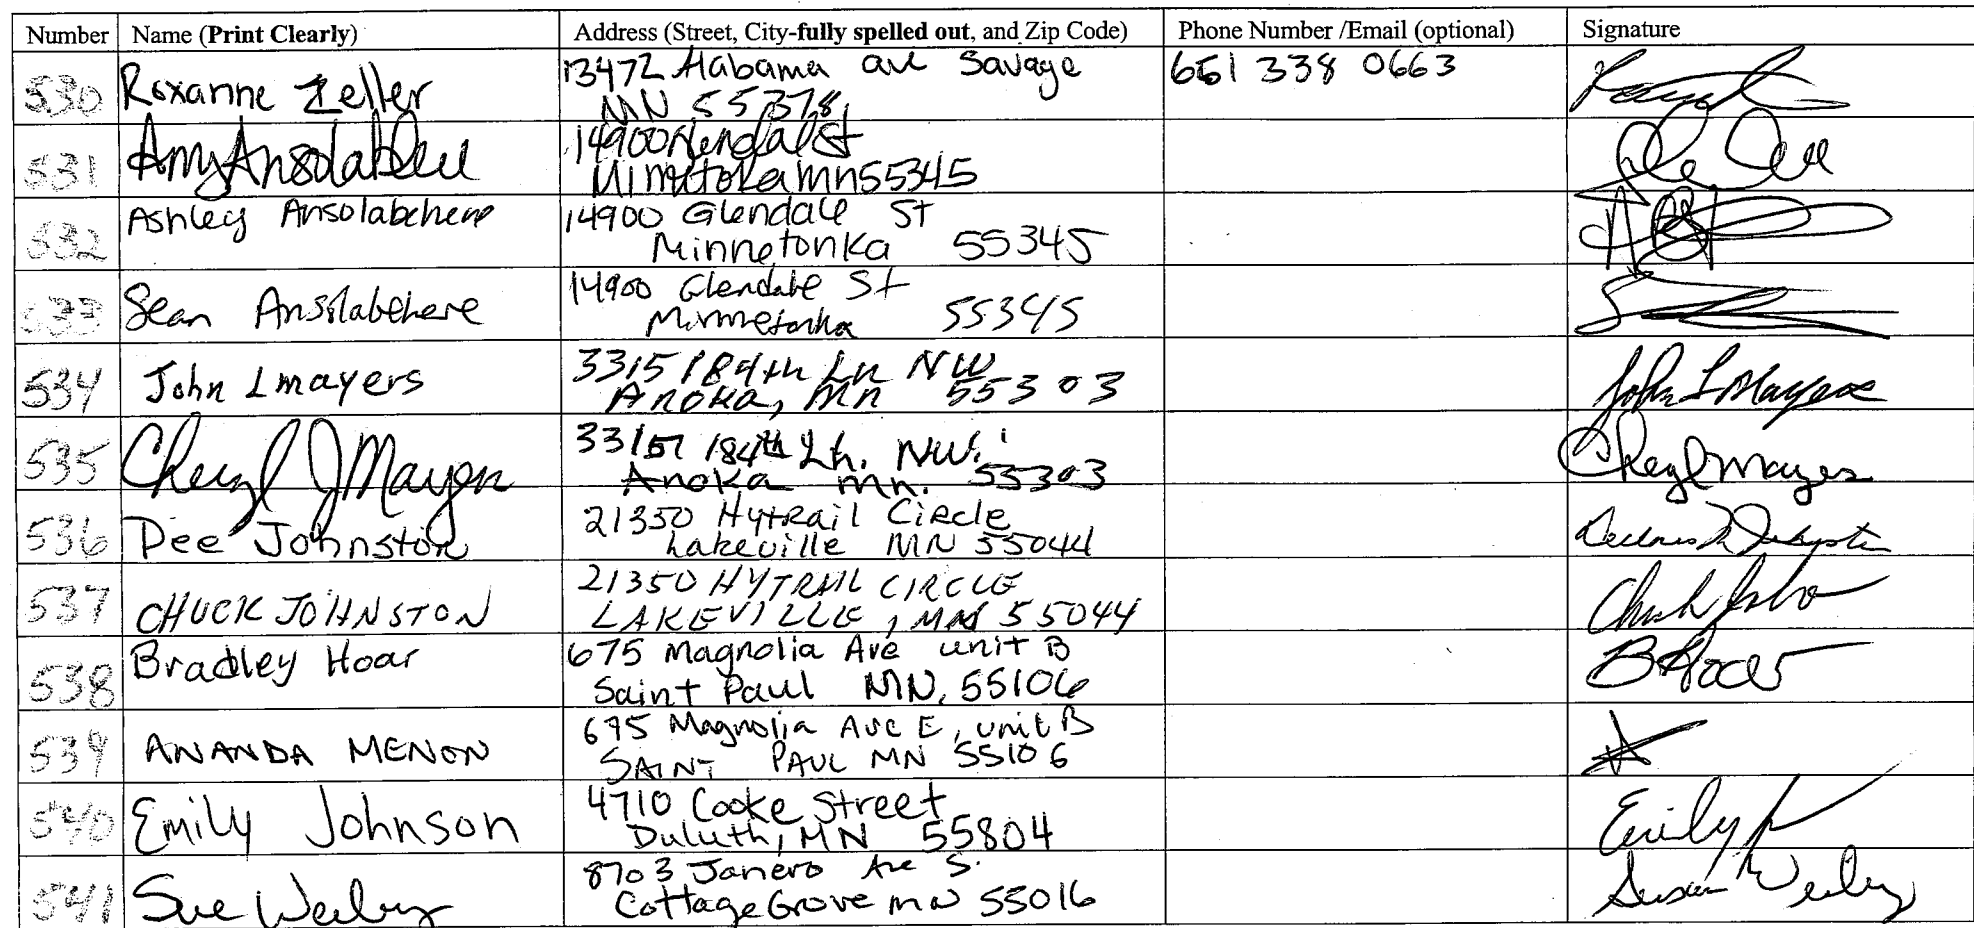 Number Name (Print Clearly) Address (Street, City-fully spelled out, and Zip Code) Phone Number /Email (optional) Signature
530 Roxanne Zeller 13472 Alabama ave Savage 651 338 0663
MN 55378
531 Amy 14900 St
55345
532 Ashley Ansolabehere 14900 Glendale St
Minnetonka 55345
533 Sean Ansolabehere 14900 Glendale St
Minnetonka 55345
534 John L mayers 3315 184th Ln NW John L Mayers
Anoka, Mn 55303
535 Cheryl J Mayers 3315 184th Ln. NW. Cheryl Mayers
Anoka mn. 55303
536 Dee Johnston 21350 Hytrail Circle
Lakeville MN 55044
537 CHUCK JOHNSTON 21350 HYTRAIL CIRCLE
LAKEVILLE, MN 55044
538 Bradley Hoar 675 Magnolia Ave unit B B Hoar
Saint Paul MN, 55106
539 ANANDA MENON 675 Magnolia Ave E, unit B
SAINT PAUL MN 55106
540 Emily Johnson 4710 Cooke Street Emily
Duluth, MN 55804
541 Sue 8703 Janero Ave S. Susan
Cottage Grove mn 55016